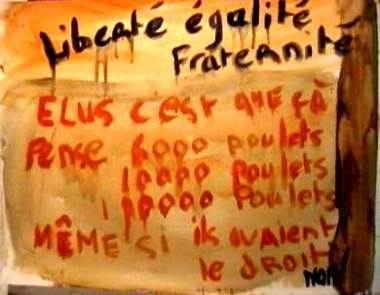 Liberté égalité
Fraternité
ELUS c'est que çà
Pense 6000 poulets
10000 Poulets
110000 Poulets
MÊME Si ils avaient
le droit
NON